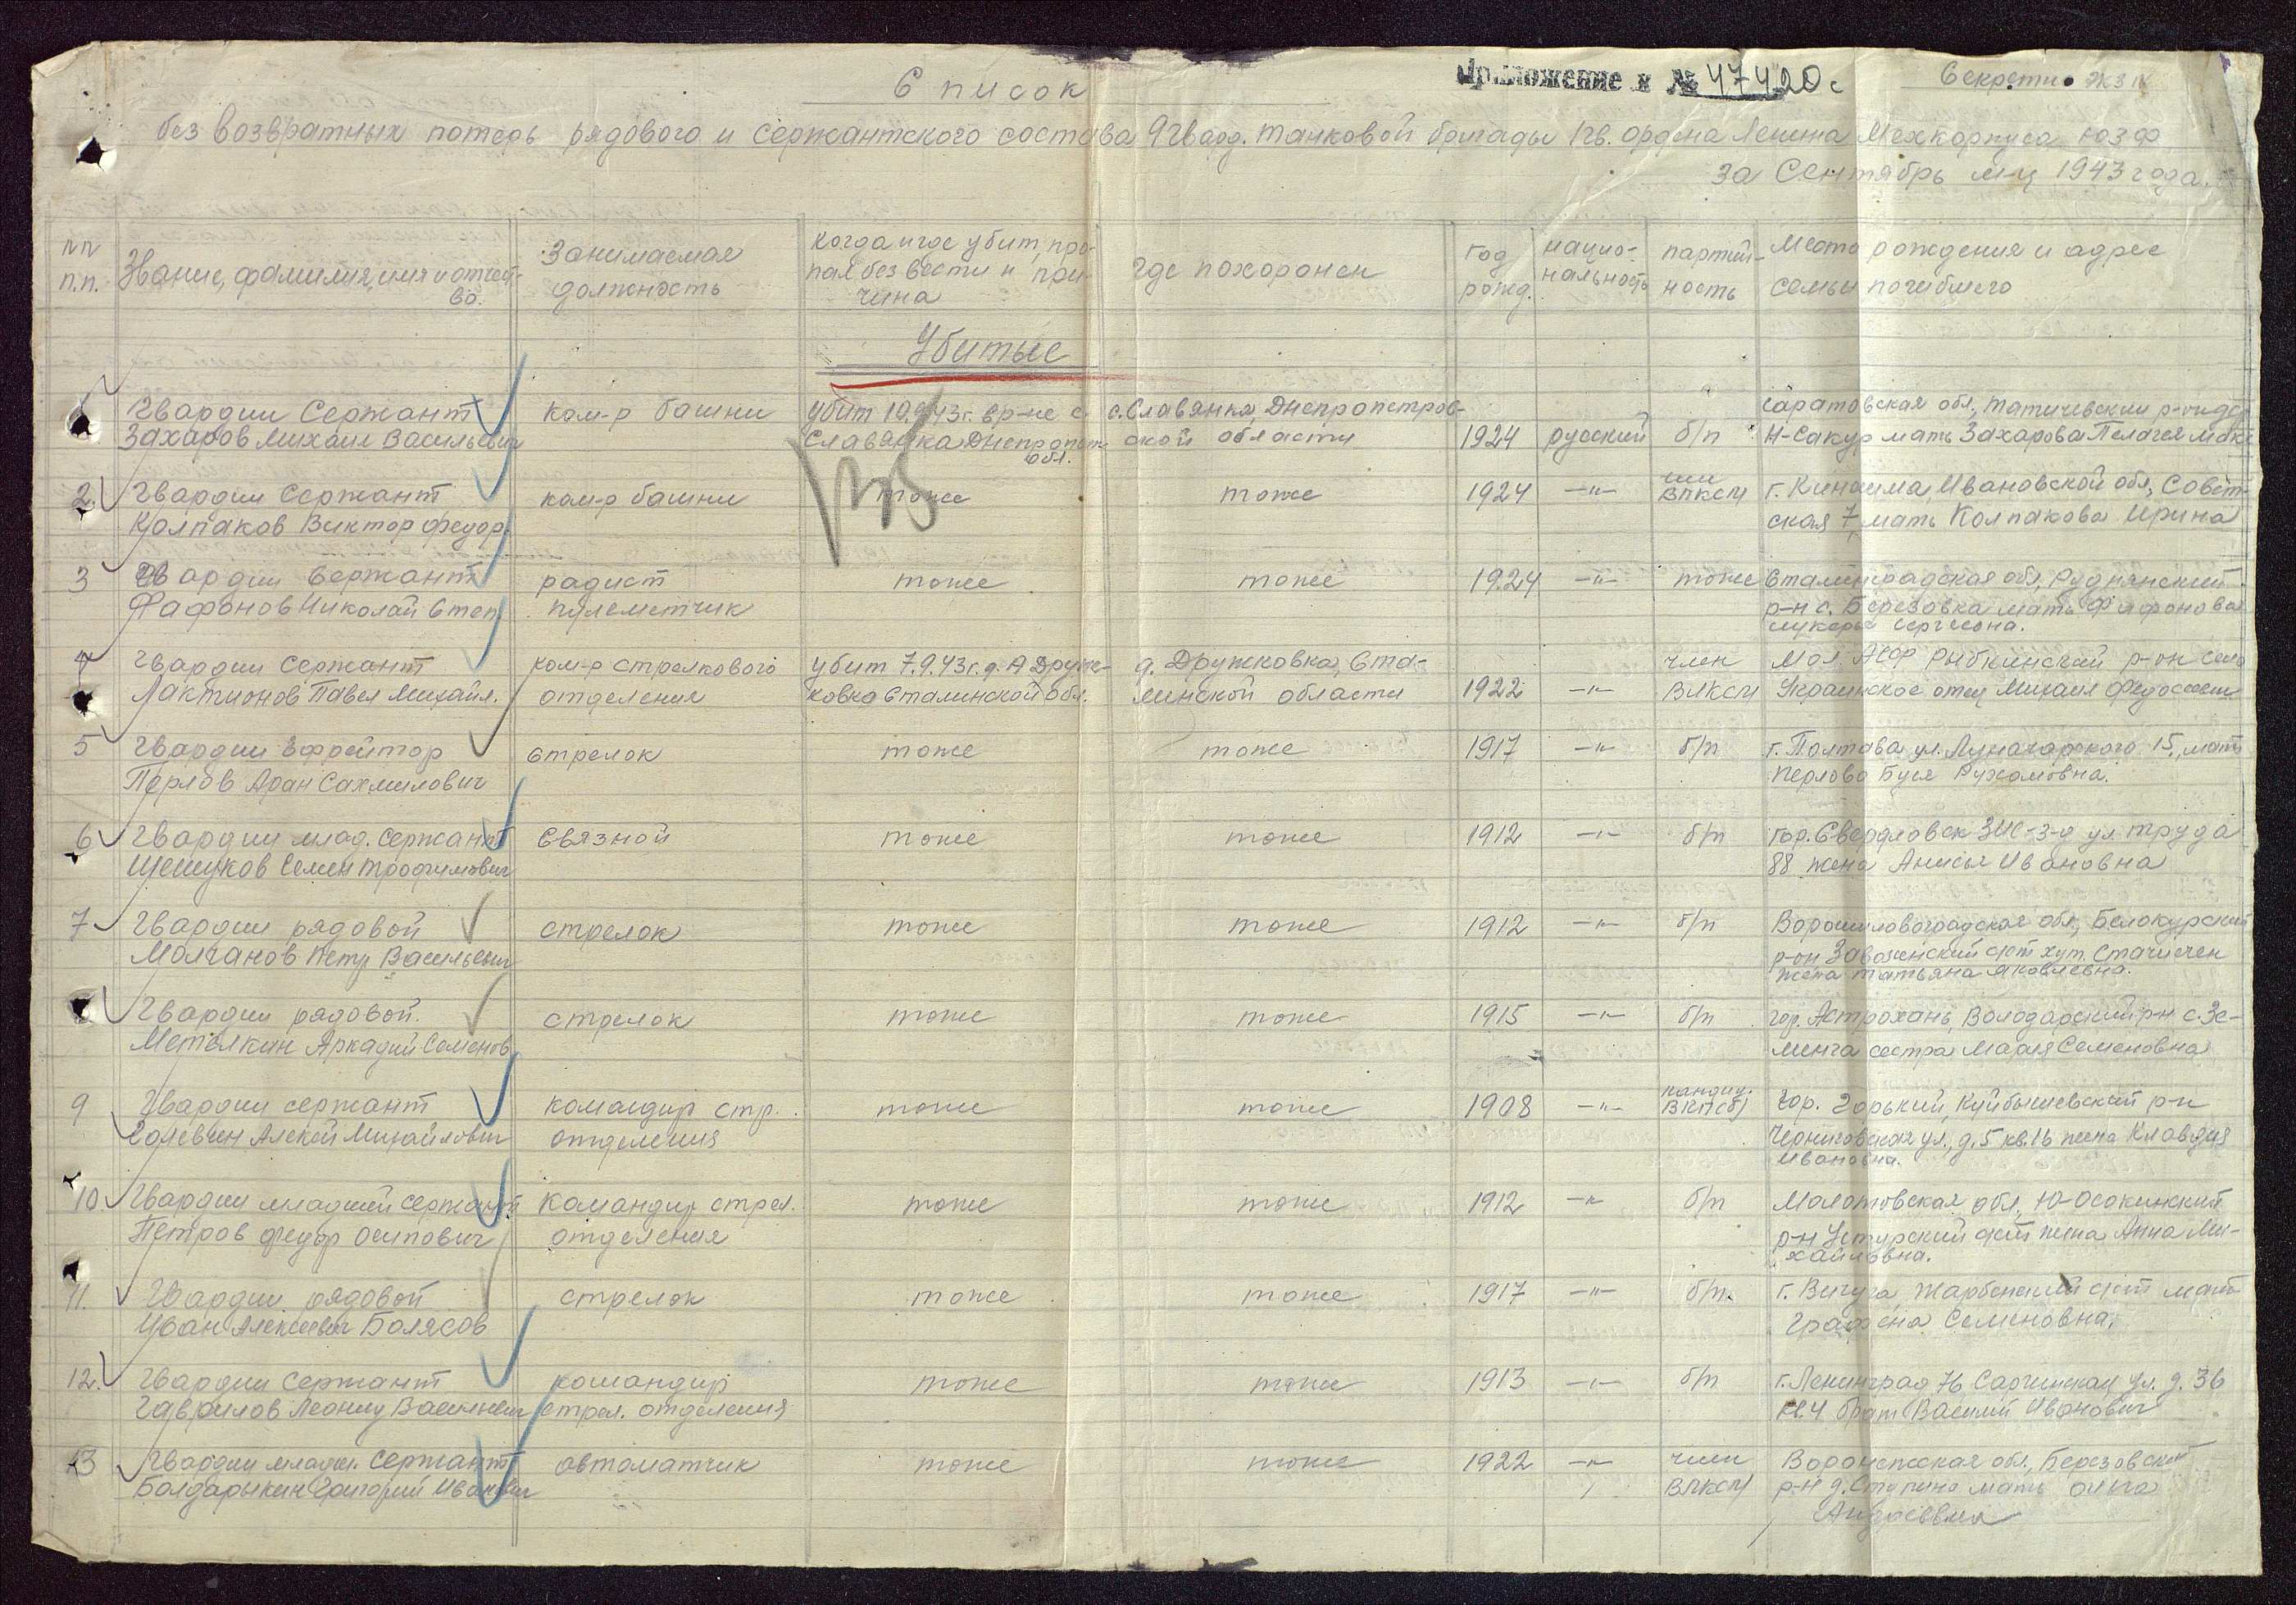 Приложение к № 47420с
Секретно экз №
Список
безвозвратных потерь рядового и сержантского состава 9 гвард. танковой бригады 1 гв. ордена Ленина Мехкорпуса ЮЗФ
за Сентябрь м-ц 1943 года.
пп п.п.
Звание, фамилия, имя и отчест-во.
Занимаемая должность
когда и где убит, про-пал без вести и при-чина
где похоронен
год рожд.
нацио-нальность
партий-ность
Место рождения и адрес семьи погибшего
Убитые
Гвардии Сержант ком-р башни убит 10.9.43г. в р-не с. с. Славянка, Днепропетров- Саратовская обл., Татищевский р-он дер
Захаров Михаил Васильевич Славянка Днепропет. обл. ской области 1924 русский б/п Н-Сакур мать Захарова Пелагея Макс
2. Гвардии Сержант ком-р башни тоже тоже 1924 —"— член ВЛКСМ г. Кинешма, Ивановской обл., Совет-
Колпаков Виктор Федор. ская 7, мать Колпакова Ирина
3 Гвардии Сержант радист тоже тоже 1924 —"— тоже Сталинградская обл., Руднянский
Фафонов Николай Степ. пулеметчик р-н с. Березовка мать Фафонова
Сергеевна.
4 Гвардии Сержант ком-р стрелкового убит 7.9.43г. д. А Друж- д. Дружковка, Ста- член Мол. АССР Рыбкинский р-он село
Лактионов Павел Михайл. отделения ковка Сталинской обл. линской области 1922 —"— ВЛКСМ Украинское отец Михаил Федосеевич
5 Гвардии Ефрейтор стрелок тоже тоже 1917 —"— б/п г. Полтава ул. Луначарского 15, мать
Перлов Аран Сахмилович Перлова Буся Рухамовна.
6 Гвардии млад. сержант Связной тоже тоже 1912 —"— б/п гор. Свердловск ЗИС-3-д ул. труда
Шешуков Семен Трофимович 88 жена Анисья Ивановна
7 Гвардии рядовой стрелок тоже тоже 1912 —"— б/п Ворошиловоградская обл., Белокурский
Молчанов Петр Васильевич р-он с/ст хут.
жена Татьяна Яковлевна.
Гвардии рядовой. стрелок тоже тоже 1915 —"— б/п гор. Астрохань, Володарский р-н с. Зе-
Метелкин Аркадий Семенов. ленга сестра Мария Семеновна
9 Гвардии сержант командир стр. тоже тоже 1908 —"— кандид. ВКП(б) Гор. Горький, Куйбышевский р-н
Голевкин Алексей Михайлович отделения Черниговская ул., д. 5 кв. 16 жена Клавдия
Ивановна.
10. Гвардии младший сержант командир стрел. тоже тоже 1912 —"— б/п Молотовская обл., Ю-Осокинский
Петров Федор Осипович отделения р-н с/ст жена Анна Ми-
хайловна.
11. Гвардии рядовой стрелок тоже тоже 1917 —"— б/п. г. Вичуга, с/ст мать
Иван Алексеевич Болясов Графена Семеновна.
12. Гвардии Сержант командир тоже тоже 1913 —"— б/п г. Ленинград ул. д. 36
Гаврилов Леонид Васильевич стрел. отделения кв. 4 брат Василий Иванович
13 Гвардии младш. Сержант автоматчик тоже тоже 1922 —"— член Воронежская обл., Березовский
Болдарыкин Григорий Иванович ВЛКСМ р-н д. Ступино мать Ольга
Андреевна